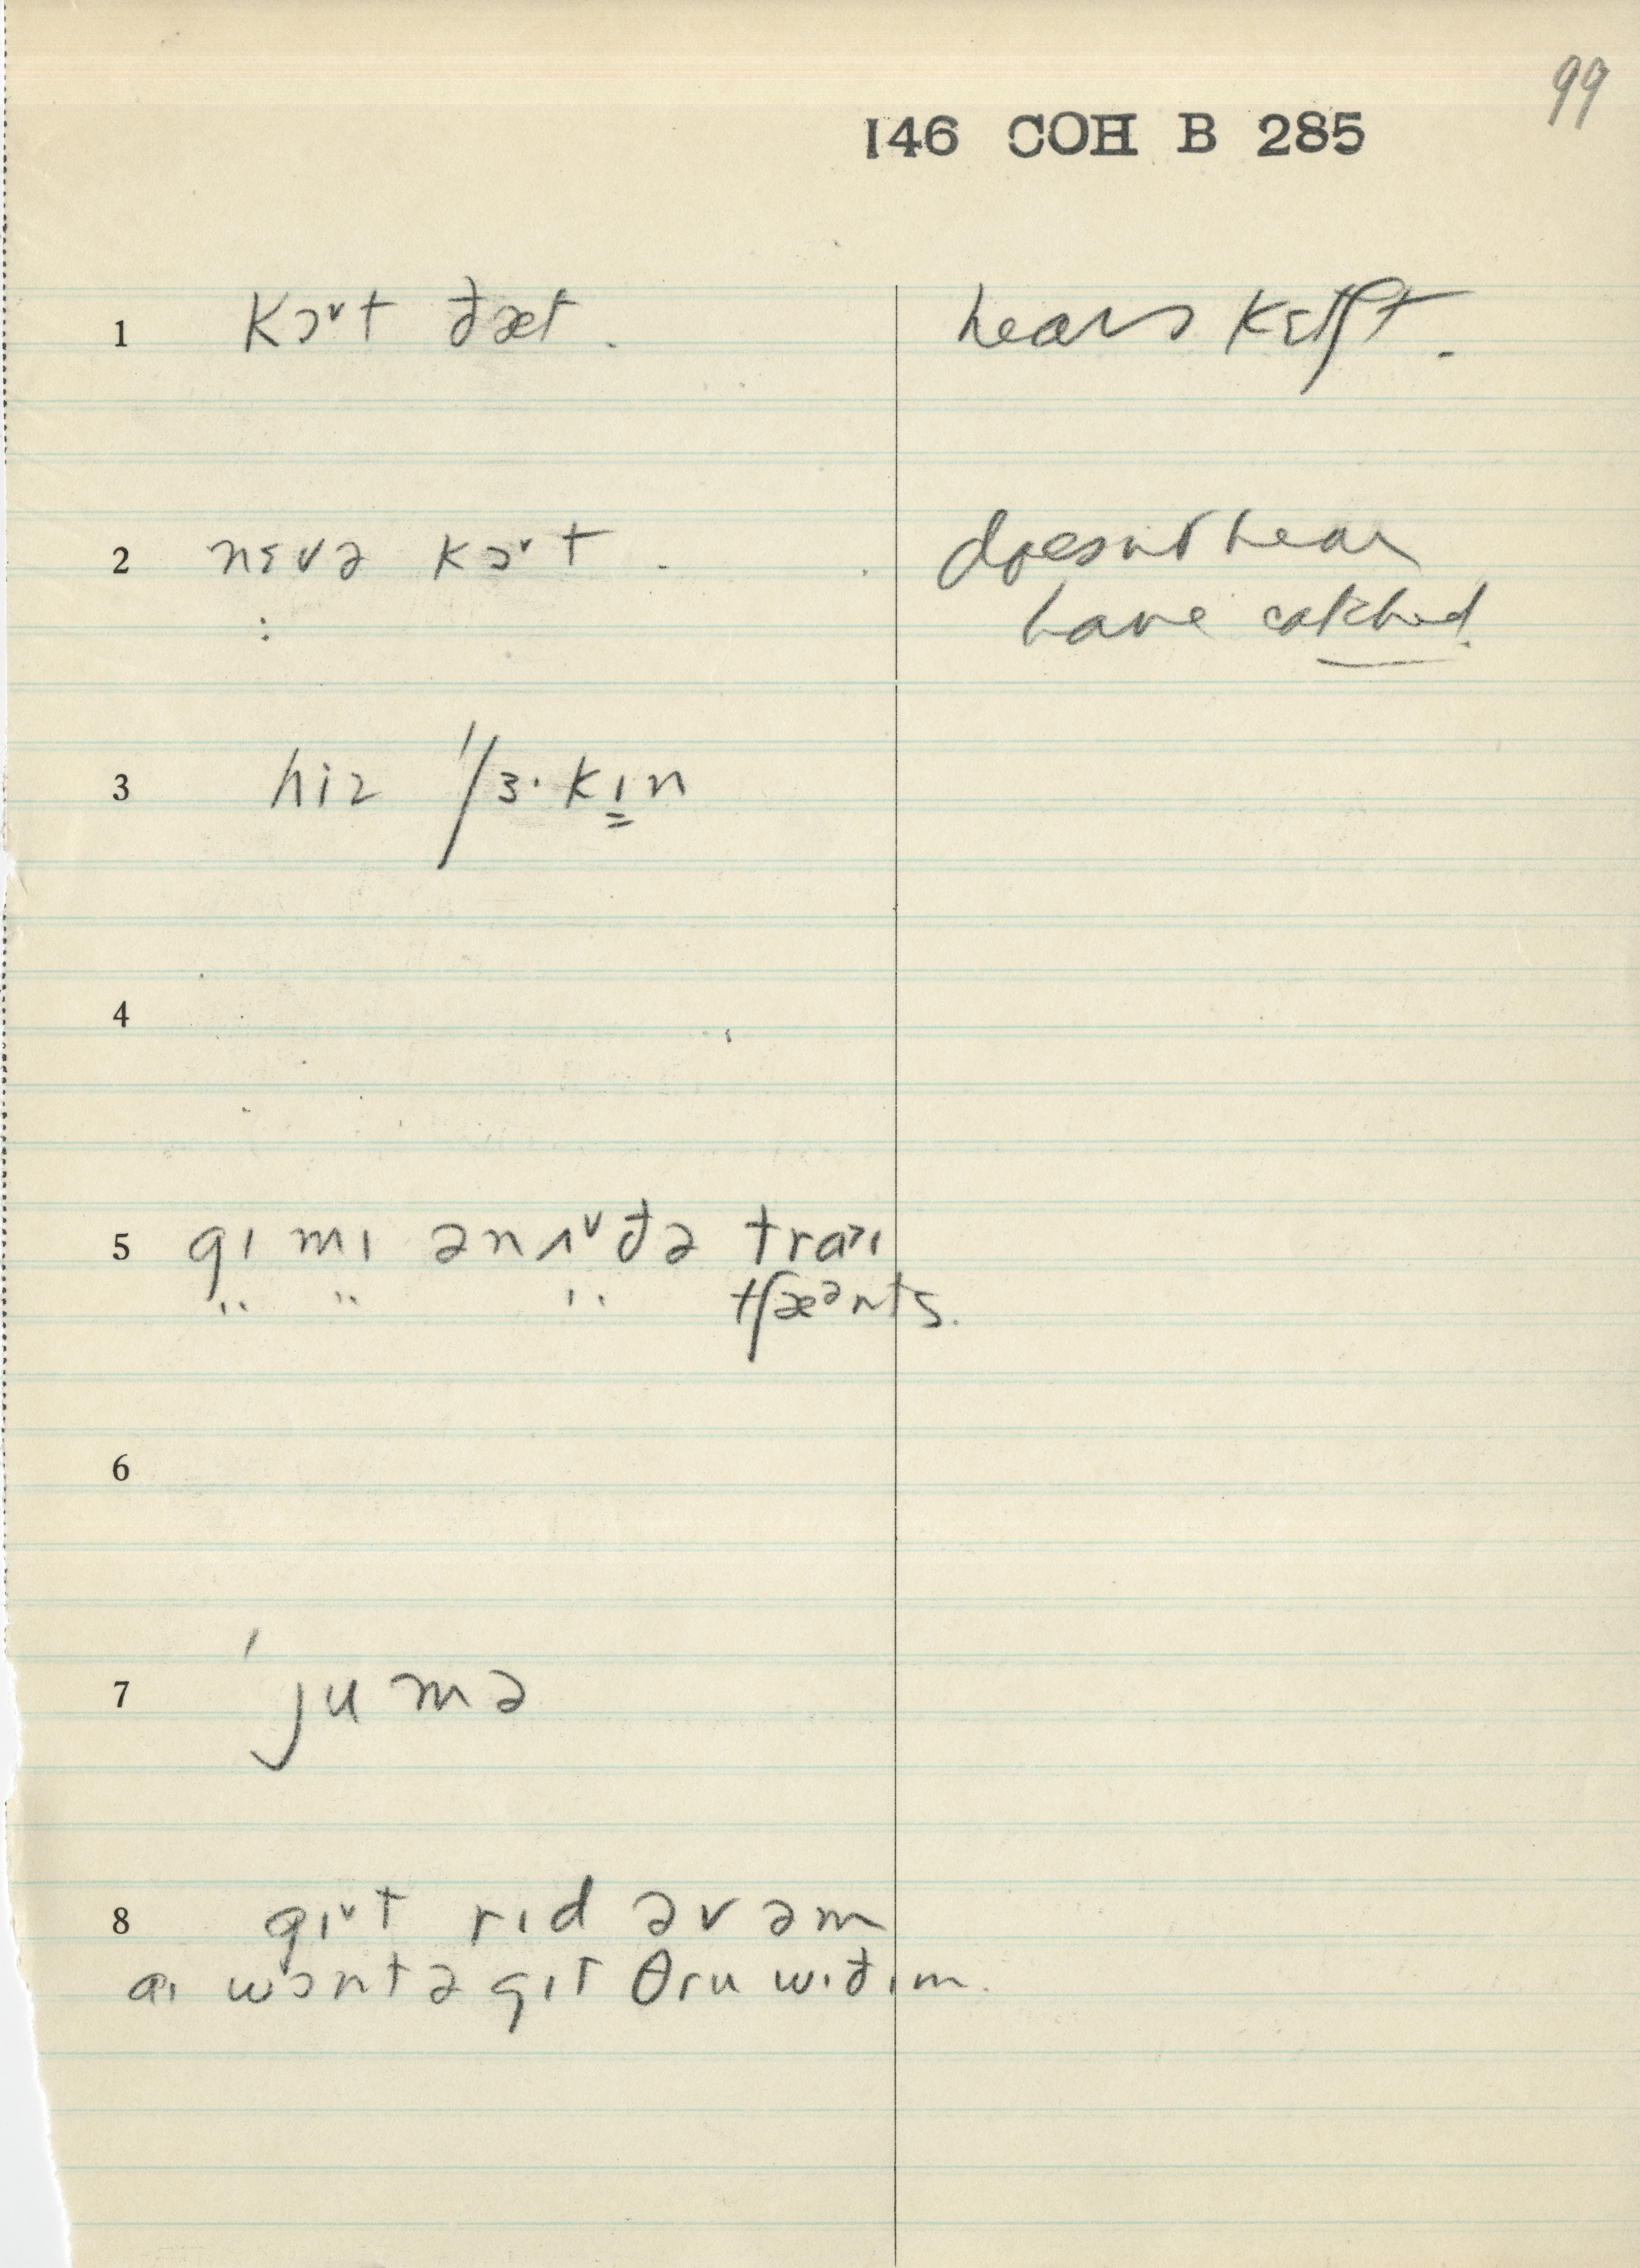 99
146 COH B 285
1 kɔˇt ðæt. hears kɛtʃt.
2 nɛvə kɔˇt. doesn't hear
: have catched.
3 hiz '/ɜ·kɪn
4
5 gɪ mɪ ənʌˇðə traɪ
" " " tʃæᵊnts.
6
7 'jumə
8 gɪˇt rɪd əvəm
aɪ wɔntə gɪt θru wɪðɪm.